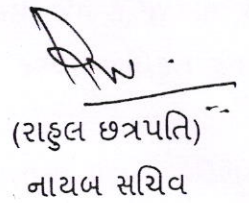 (રાહુલ છત્રપતિ)
નાયબ સચિવ